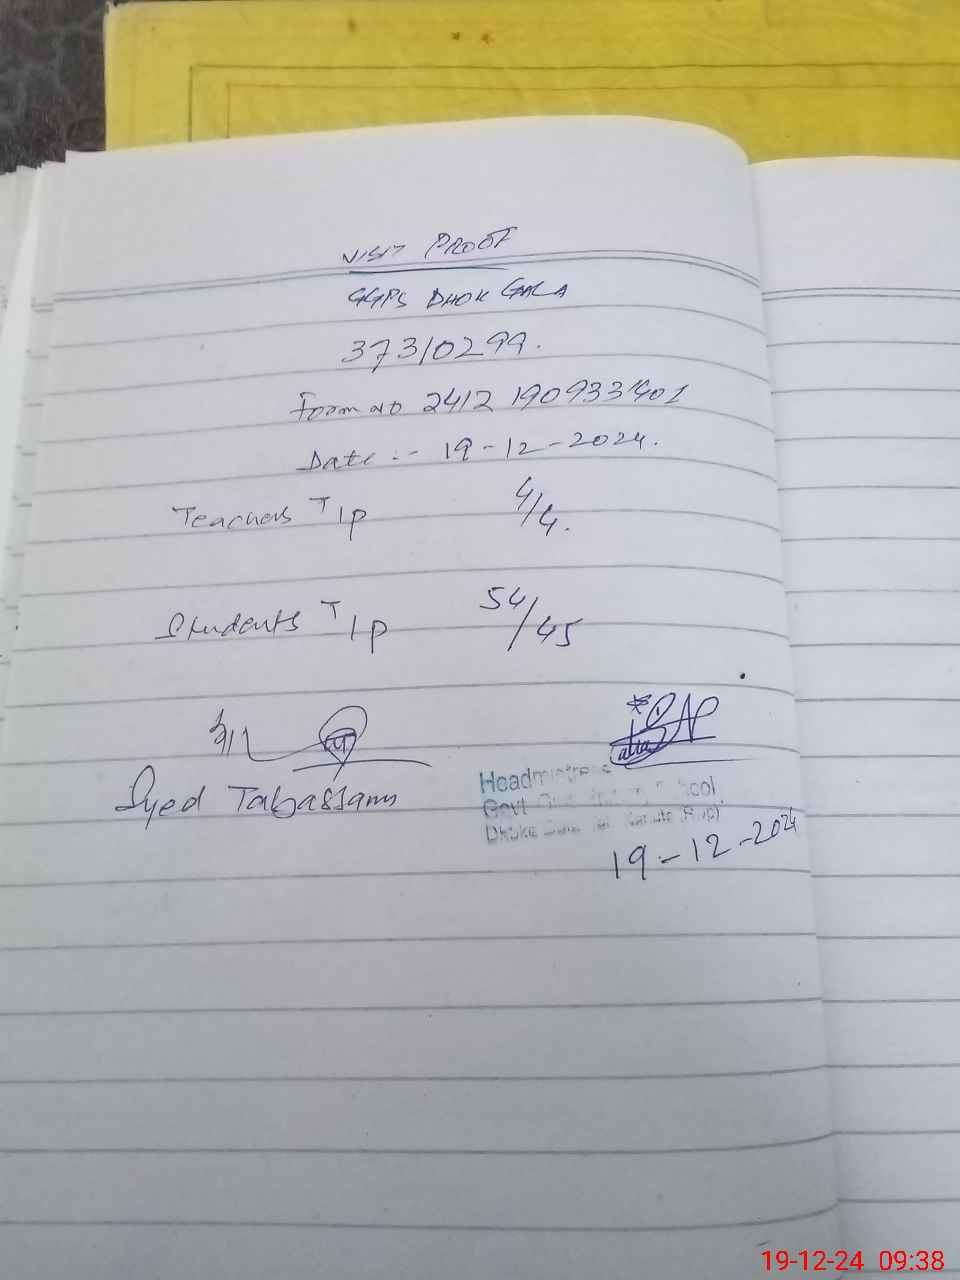 VISIT PROOF
GGPS DHOK GALA
37310299.
Form no 2412190933401
Date :- 19-12-2024.
Teachers T/P 4/4.
Students T/P 54/45
Syed Tabassam
Headmistress
Govt School
Dhoke
19-12-2024
19-12-24 09:38